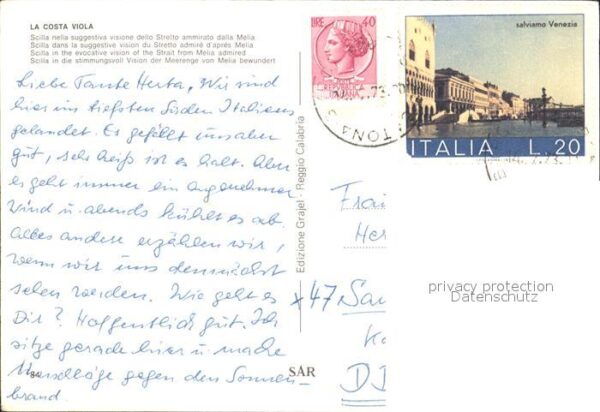 LA COSTA VIOLA
Scilla nella suggestiva visione dello Stretto ammirato dalla Melia
Scilla dans la suggestive vision du Stretto admiré d'après Melia
Scilla in the evocative vision of the Strait from Melia admired
Scilla in die stimmungsvoll Vision der Meerenge von Melia bewundert
Liebe Tante Herta, Wir sind
hier im tiefsten Süden Italiens
gelandet. Es gefällt uns aber
gut, sehr heiß ist es halt. Aber
es geht immer ein angenehmer
Wind u. abends kühlt es ab.
Alles andere erzählen wir,
wenn wir uns demnächst
sehen werden. Wie geht es
Dir? Hoffentlich gut. Ich
sitze gerade hier u. mache
Umschläge gegen den Sonnen
brand.
Edizione Grajel - Reggio Calabria
SAR
LIRE 40
salviamo Venezia
ITALIA L. 20
Frau
Her
x47 Saa
D
privacy protection
Datenschutz